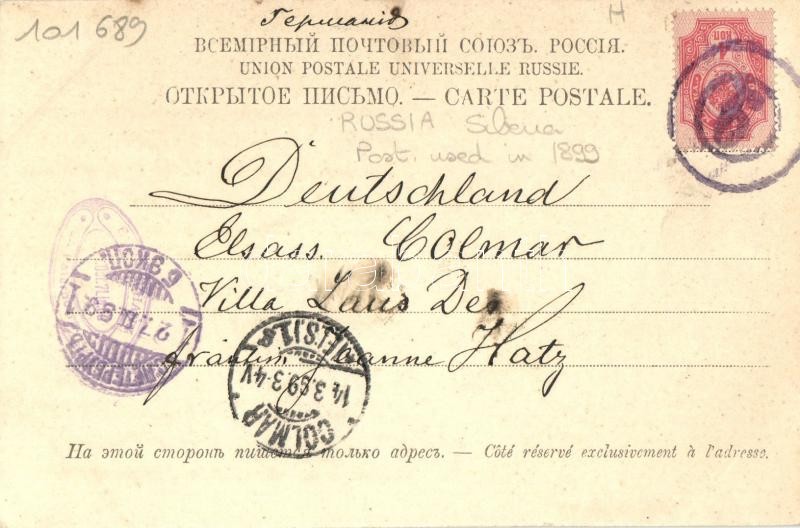 Германія
H
101 689
ВСЕМІРНЫЙ ПОЧТОВЫЙ СОЮЗЪ. РОССІЯ.
UNION POSTALE UNIVERSELLE RUSSIE.
ОТКРЫТОЕ ПИСЬМО. — CARTE POSTALE.
RUSSIA Siberia
Post. used in 1899
Deutschland
Elsass. Colmar
Villa Laus Deo
Fräulein Jeanne Hatz
27 II 99
COLMAR (ELS) 1
14.3.99 3-4V
На этой сторонѣ пишется только адресъ. — Côté réservé exclusivement à l'adresse.